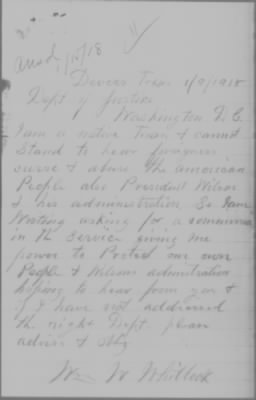 Ansd 1/15/18
Devers Texas 1/9/1918
Dept of Justice
Washington D.C.
I am a native Texan & cannot
Stand to hear foreigners
curse & abuse the American
People also President Wilson
& his administration So I am
Writing asking for a commission
in the Service giving me
power to Protect our own
People & Wilsons administration
hoping to hear from you &
if I have not addressed
the right Dept please
advise & oblg
Wm W Whitlock